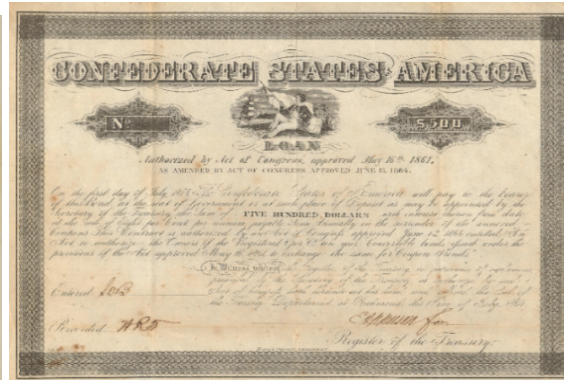 CONFEDERATE STATES OF AMERICA
No
$500
LOAN
Authorized by Act of Congress, approved May 16th 1861.
AS AMENDED BY ACT OF CONGRESS APPROVED JUNE 13, 1864.
On the first day of July The Confederate States of America will pay to the bearer
of this Bond, at the seat of Government or at such place of Deposit as may be appointed by the
Secretary of the Treasury the Sum of FIVE HUNDRED DOLLARS with interest thereon from date
at the rate of per annum payable Semi Annually on the surrender of the annexed
Coupons This Contract is authorized by an Act of Congress approved June 1864 entitled "An
Act to authorize the Owners of the Registered per Ct ten year Convertible bonds issued under the
provisions of the Act approved May 16 1861 to exchange the same for Coupon Bonds"
IN WITNESS WHEREOF the Register of the Treasury in pursuance of
of the Secretary of the Treasury
the Seal of
the Treasury Department at Richmond, this day of July
Entered
Recorded
for
Register of the Treasury.